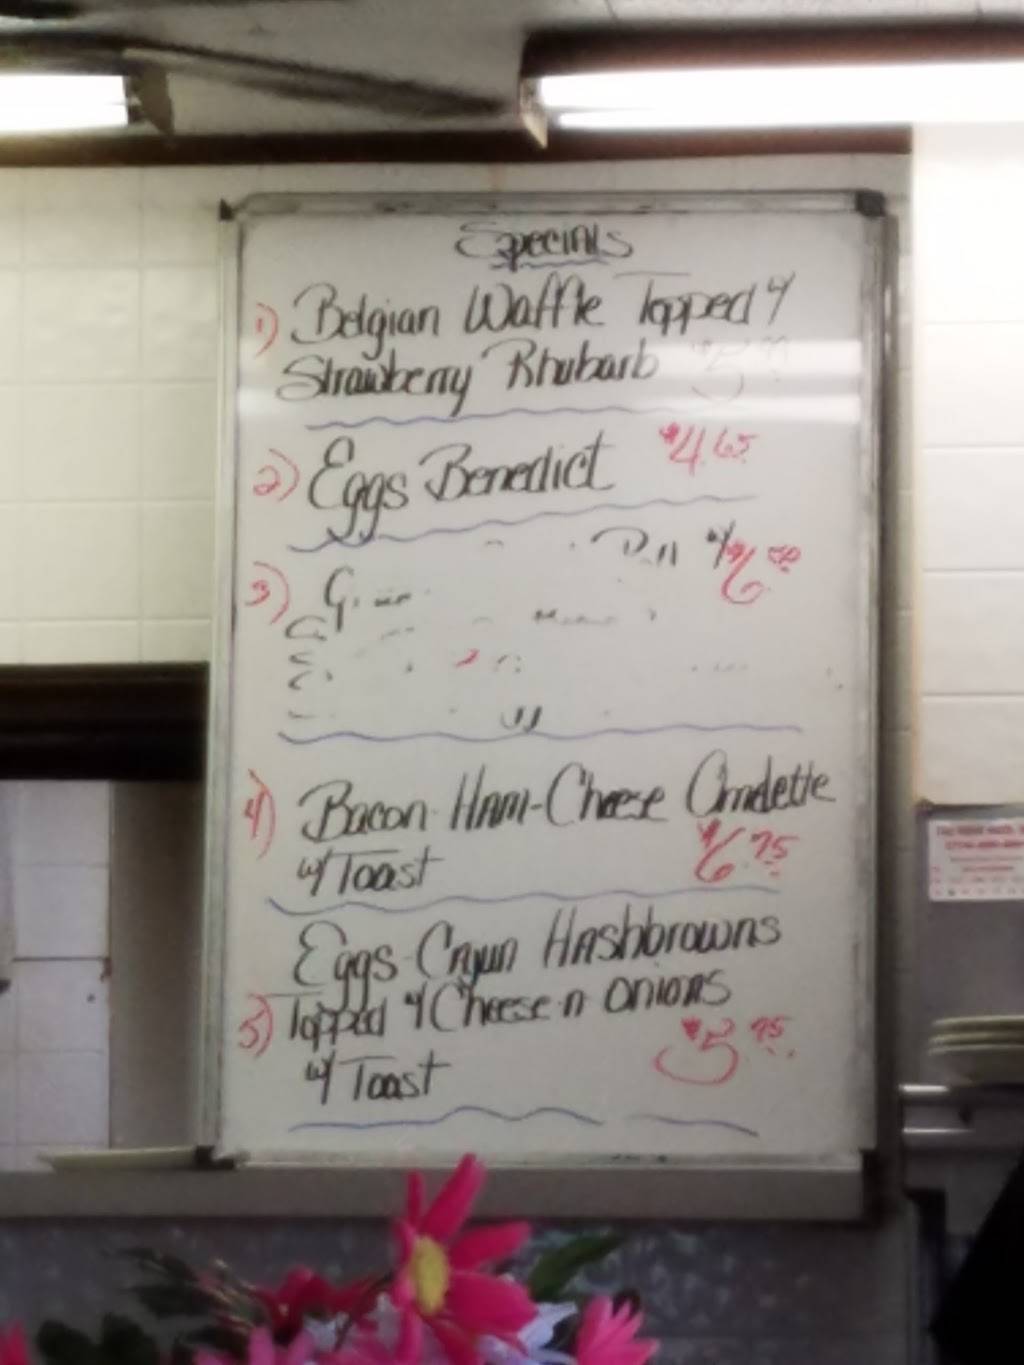 Specials
1) Belgian Waffle Topped w/
Strawberry Rhubarb
2) Eggs Benedict $4.65
3) $6.50
4) Bacon-Ham-Cheese Omelette
w/ Toast $6.75
Eggs-Cajun Hashbrowns
5) Topped w/ Cheese-n-onions
w/ Toast $5.75